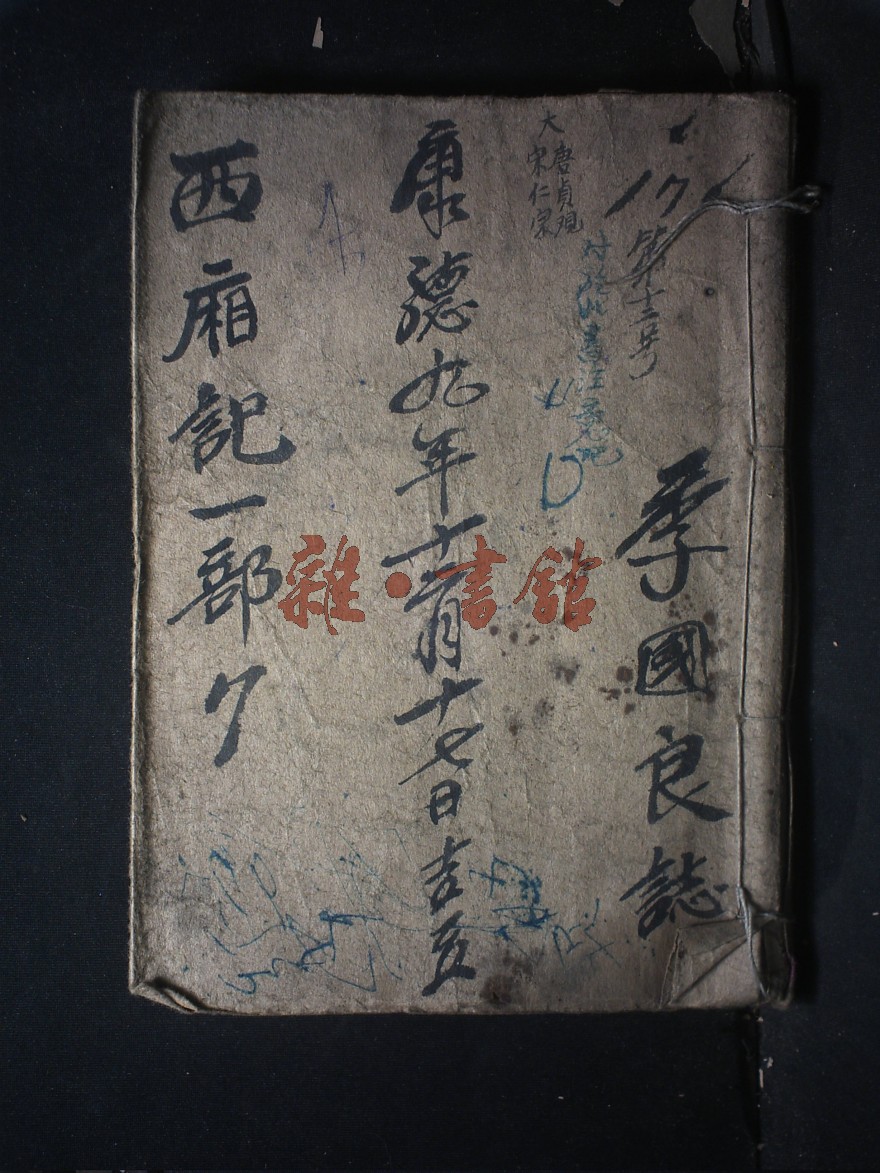 第十三号
季國良誌
大
唐貞观
宋仁宗
康德九年十二月十七日吉立
西廂記一部
雜·書館